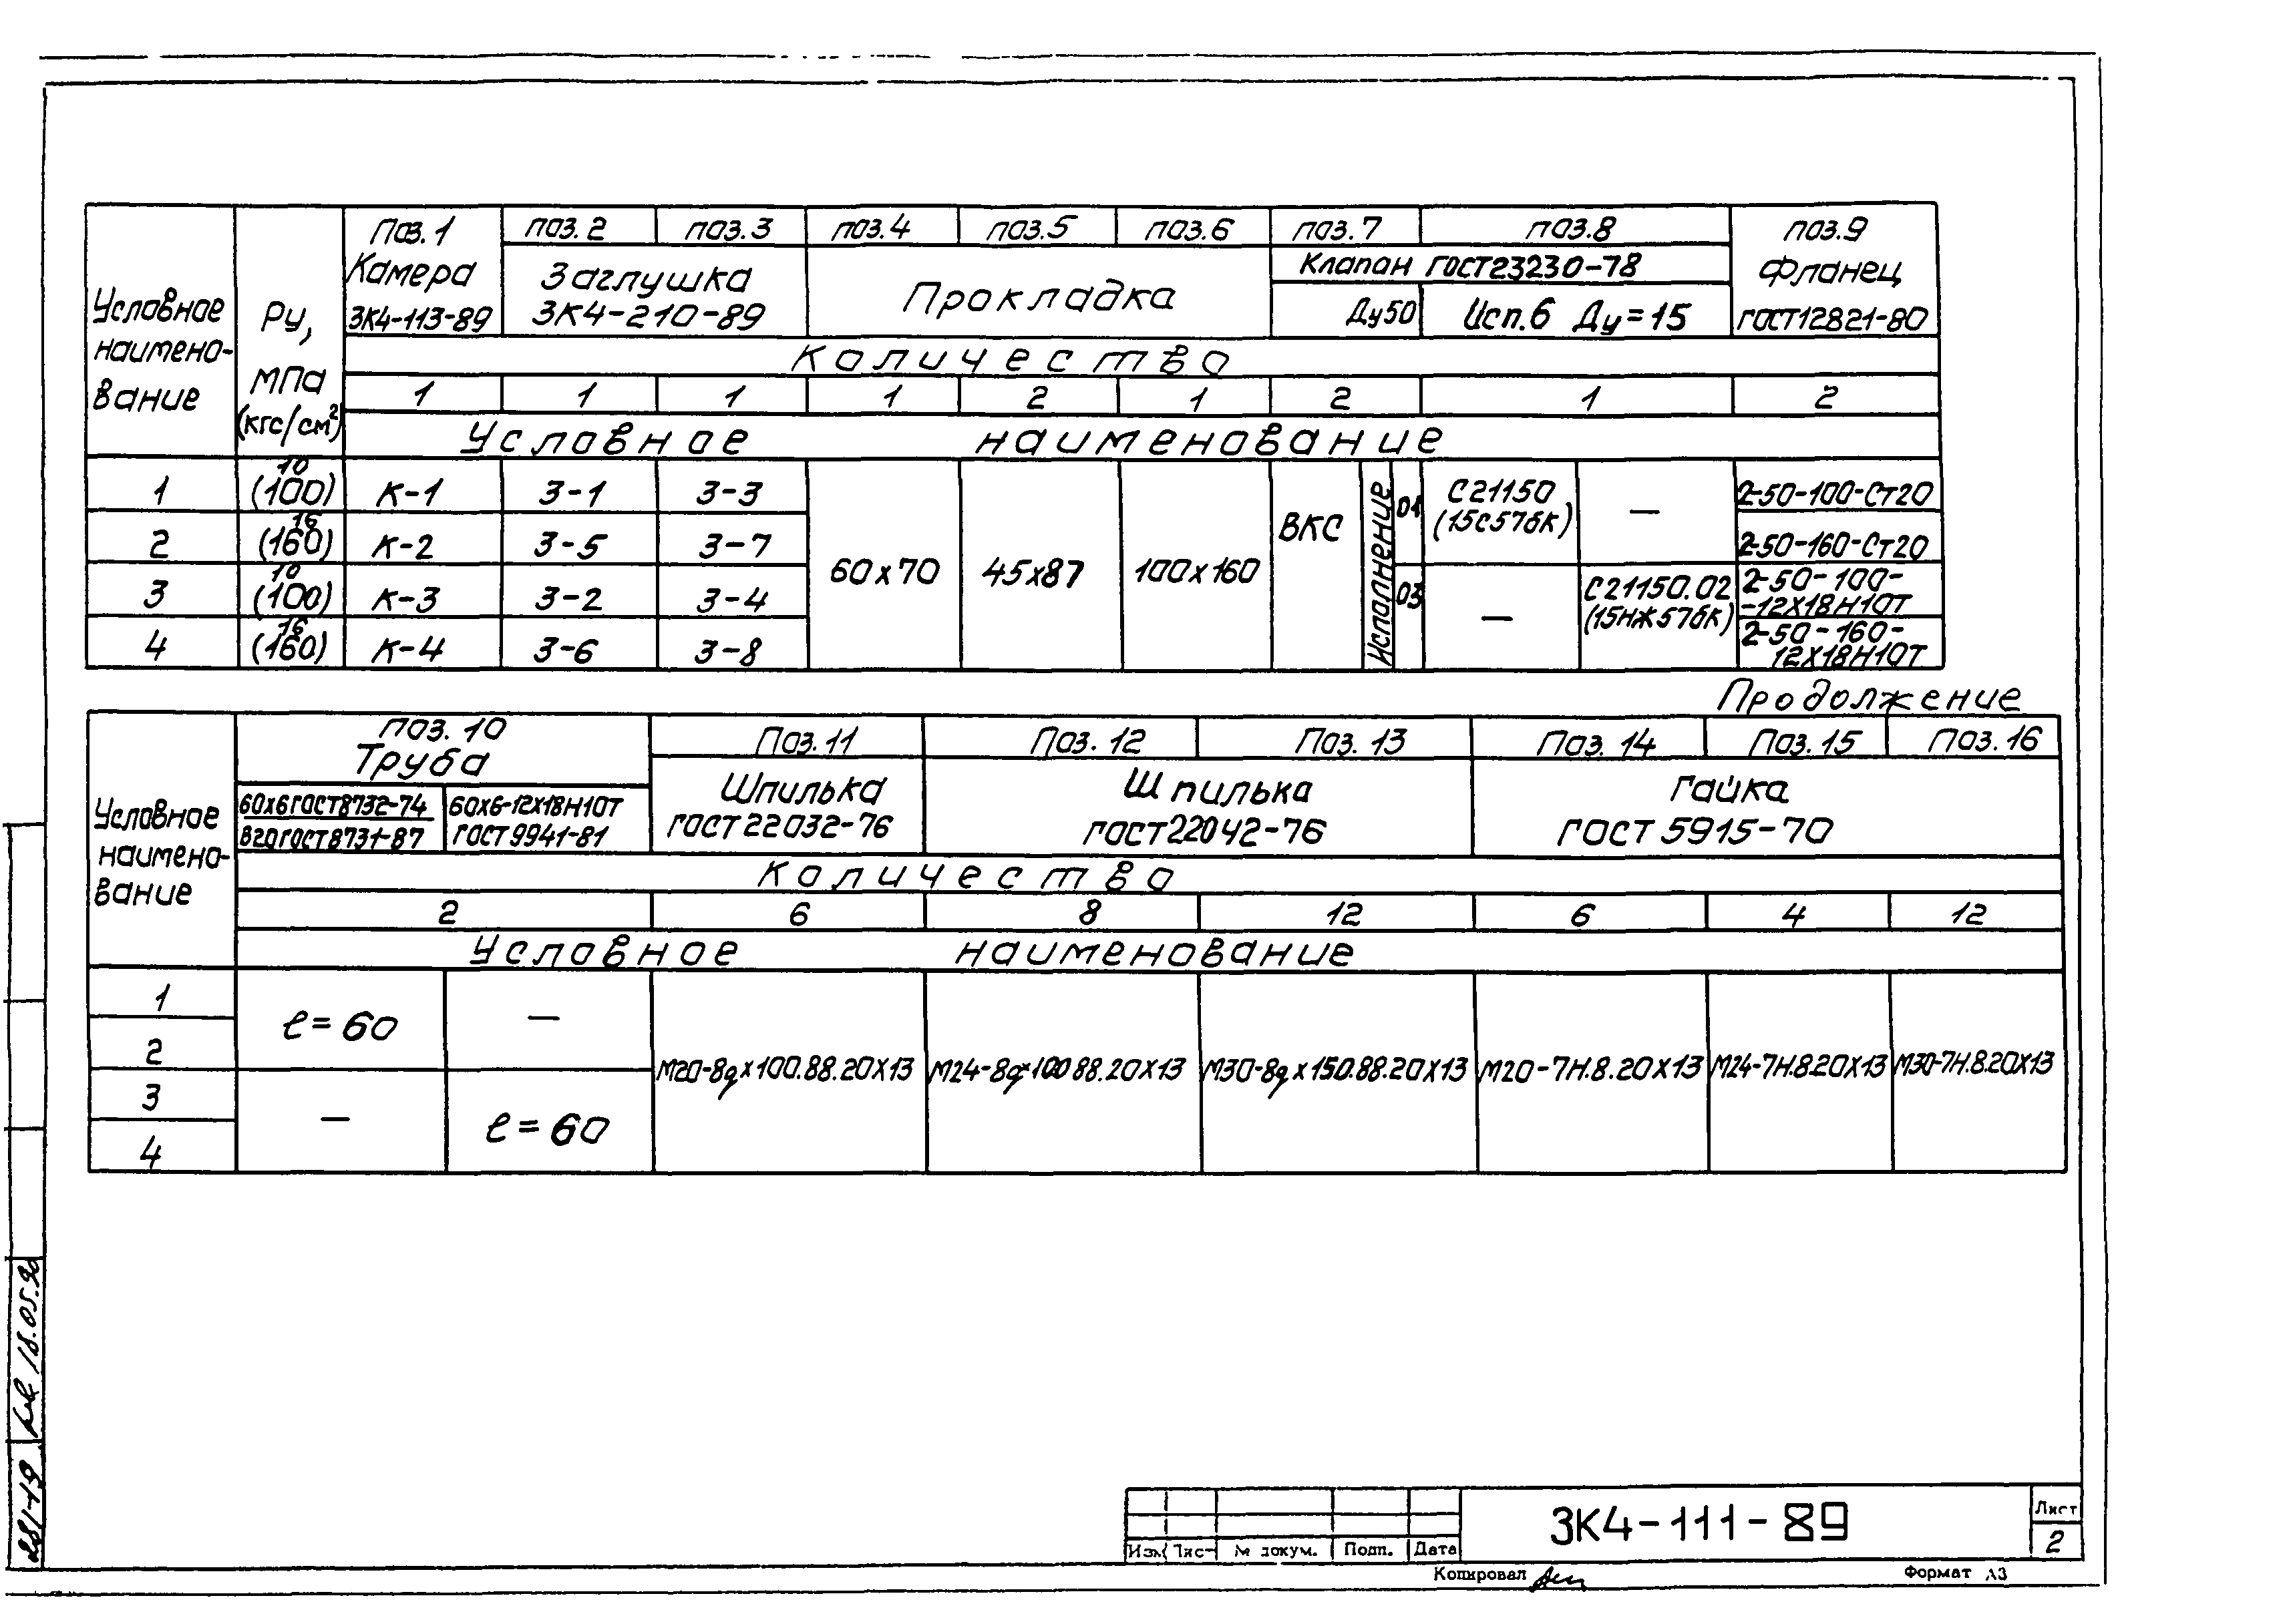 Условное наимено-вание
Ру, МПа (кгс/см²)
Поз.1 поз.2 поз.3 поз.4 поз.5 поз.6 поз.7 поз.8 поз.9
Камера ЗК4-113-89
Заглушка ЗК4-210-89
Прокладка
Клапан ГОСТ23230-78
Ду50 Исп.6 Ду=15
Фланец ГОСТ12821-80
Количество
1 1 1 1 2 1 2 1 2
Условное наименование
1 10 (100) К-1 З-1 З-3
2 16 (160) К-2 З-5 З-7
3 10 (100) К-3 З-2 З-4
4 16 (160) К-4 З-6 З-8
60х70 45х87 100х160 ВКС
Исполнение 01 03
С21150 (15с57бк) —
— С21150.02 (15нж57бк)
2-50-100-Ст20
2-50-160-Ст20
2-50-100-
-12Х18Н10Т
2-50-160-
12Х18Н10Т
Продолжение
Условное наимено-вание
поз. 10 Поз.11 Поз. 12 Поз. 13 Поз. 14 Поз. 15 Поз. 16
Труба
60х6ГОСТ8732-74
В20ГОСТ8731-87
60х6-12Х18Н10Т
ГОСТ9941-81
Шпилька
ГОСТ22032-76
Шпилька
ГОСТ22042-76
Гайка
ГОСТ 5915-70
Количество
2 6 8 12 6 4 12
Условное наименование
1
2
3
4
ℓ=60 —
— ℓ=60
М20-8gх100.88.20Х13 М24-8gх100 88.20Х13 М30-8gх150.88.20Х13 М20-7Н.8.20Х13 М24-7Н.8.20Х13 М30-7Н.8.20Х13
18.05.90
281-19
Изм Лист № докум. Подп. Дата
ЗК4-111-89
Лист
2
Копировал Формат А3